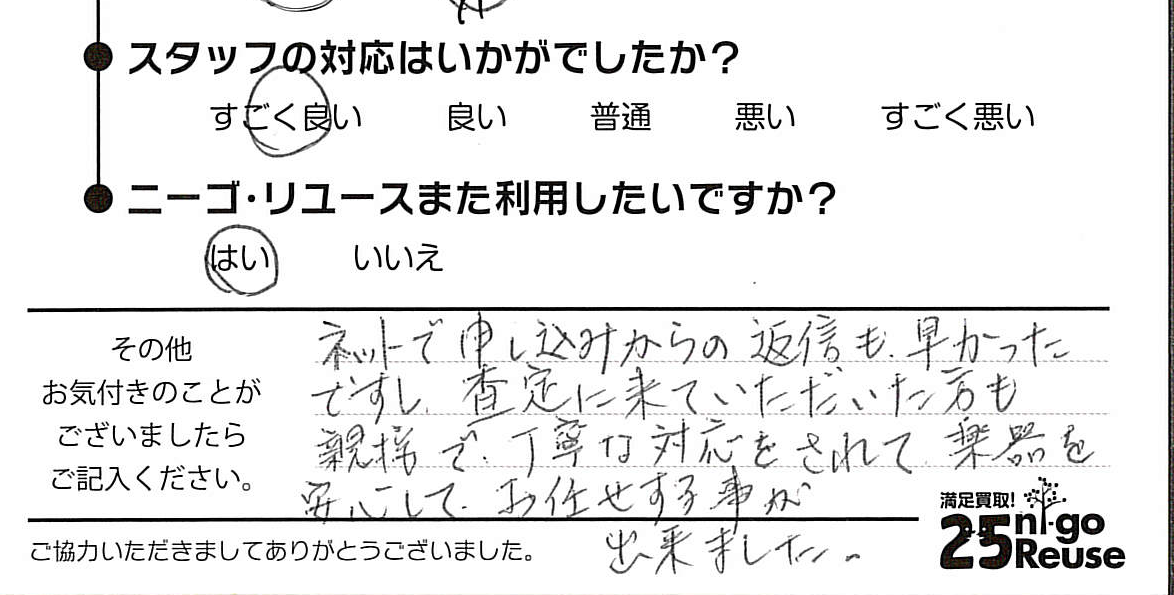 スタッフの対応はいかがでしたか？
すごく良い 良い 普通 悪い すごく悪い
ニーゴ・リユースまた利用したいですか？
はい いいえ
その他
お気付きのことが
ございましたら
ご記入ください。
ネットで申し込みからの返信も、早かった
ですし、査定に来ていただいた方も
親揺で、丁寧な対応をされて、楽器を
安心して、お任せする事が
出来ました。
満足買取!
25 ni-go
Reuse
ご協力いただきましてありがとうございました。